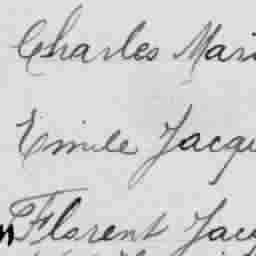 Charles Mari
Emile Jacqu
Florent Jacq